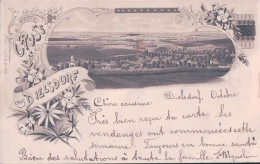 GRUSS
DIELSDORF
Dielsdorf, Octobre
Chère cousine
Très bien reçu ta carte. Les
vendanges ont commencé cette
semaine. Toujours en bonne santé
Bien des salutations à toute la famille